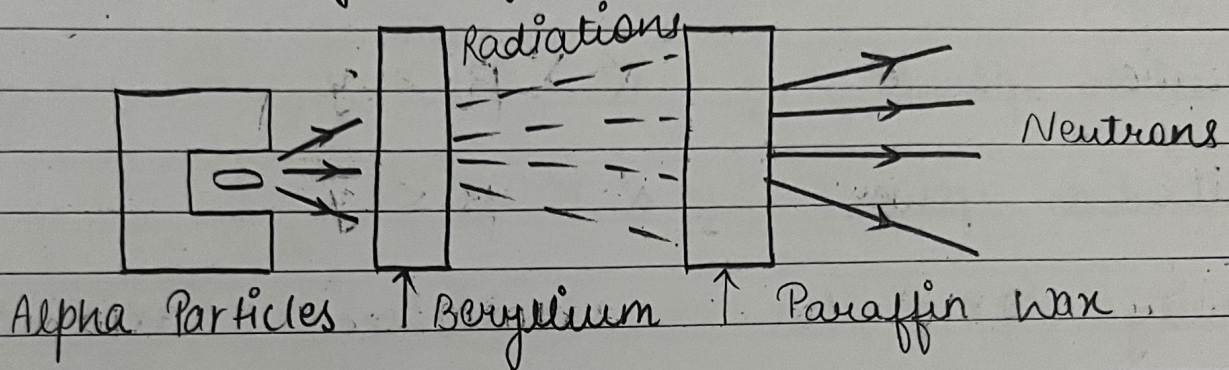 Radiations
Neutrons
Alpha Particles ↑ Beryllium ↑ Paraffin Wax